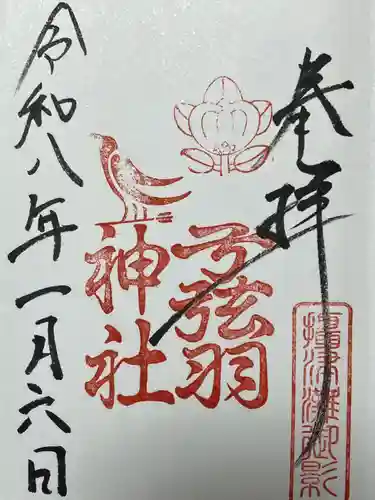 奉拝
摂津灘御影
弓弦羽
神社
令和八年一月六日